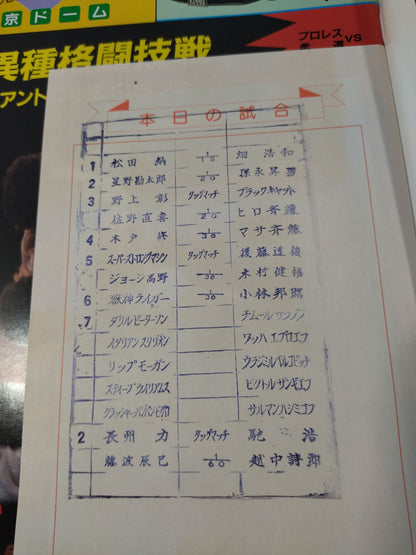 京ドーム
異種格闘技戦
プロレスVS
アント
本日の試合
1 松田 納 1/15 畑 浩和
2 星野勘太郎 1/20 保永昇男
3 野上 彰 タッグマッチ ブラックキャット
佐野直喜 1/20 ヒロ斉藤
4 木戸 修 1/30 マサ斉藤
5 スーパーストロングマシン タッグマッチ 後藤達俊
ジョージ高野 1/30 木村健悟
6 獣神ライガー 1/30 小林邦昭
7 ダリルピーターソン チムール
イタリアンスタリオン ワッハエブロエフ
リップモーガン ウラジミルベルコビッチ
スティーブウイリアムス ビクトルザンギエフ
クラッシャーバンバンビガロ サルマンハシミコフ
2 長州 力 タッグマッチ 馳 浩
藤波辰巳 1/60 越中詩郎